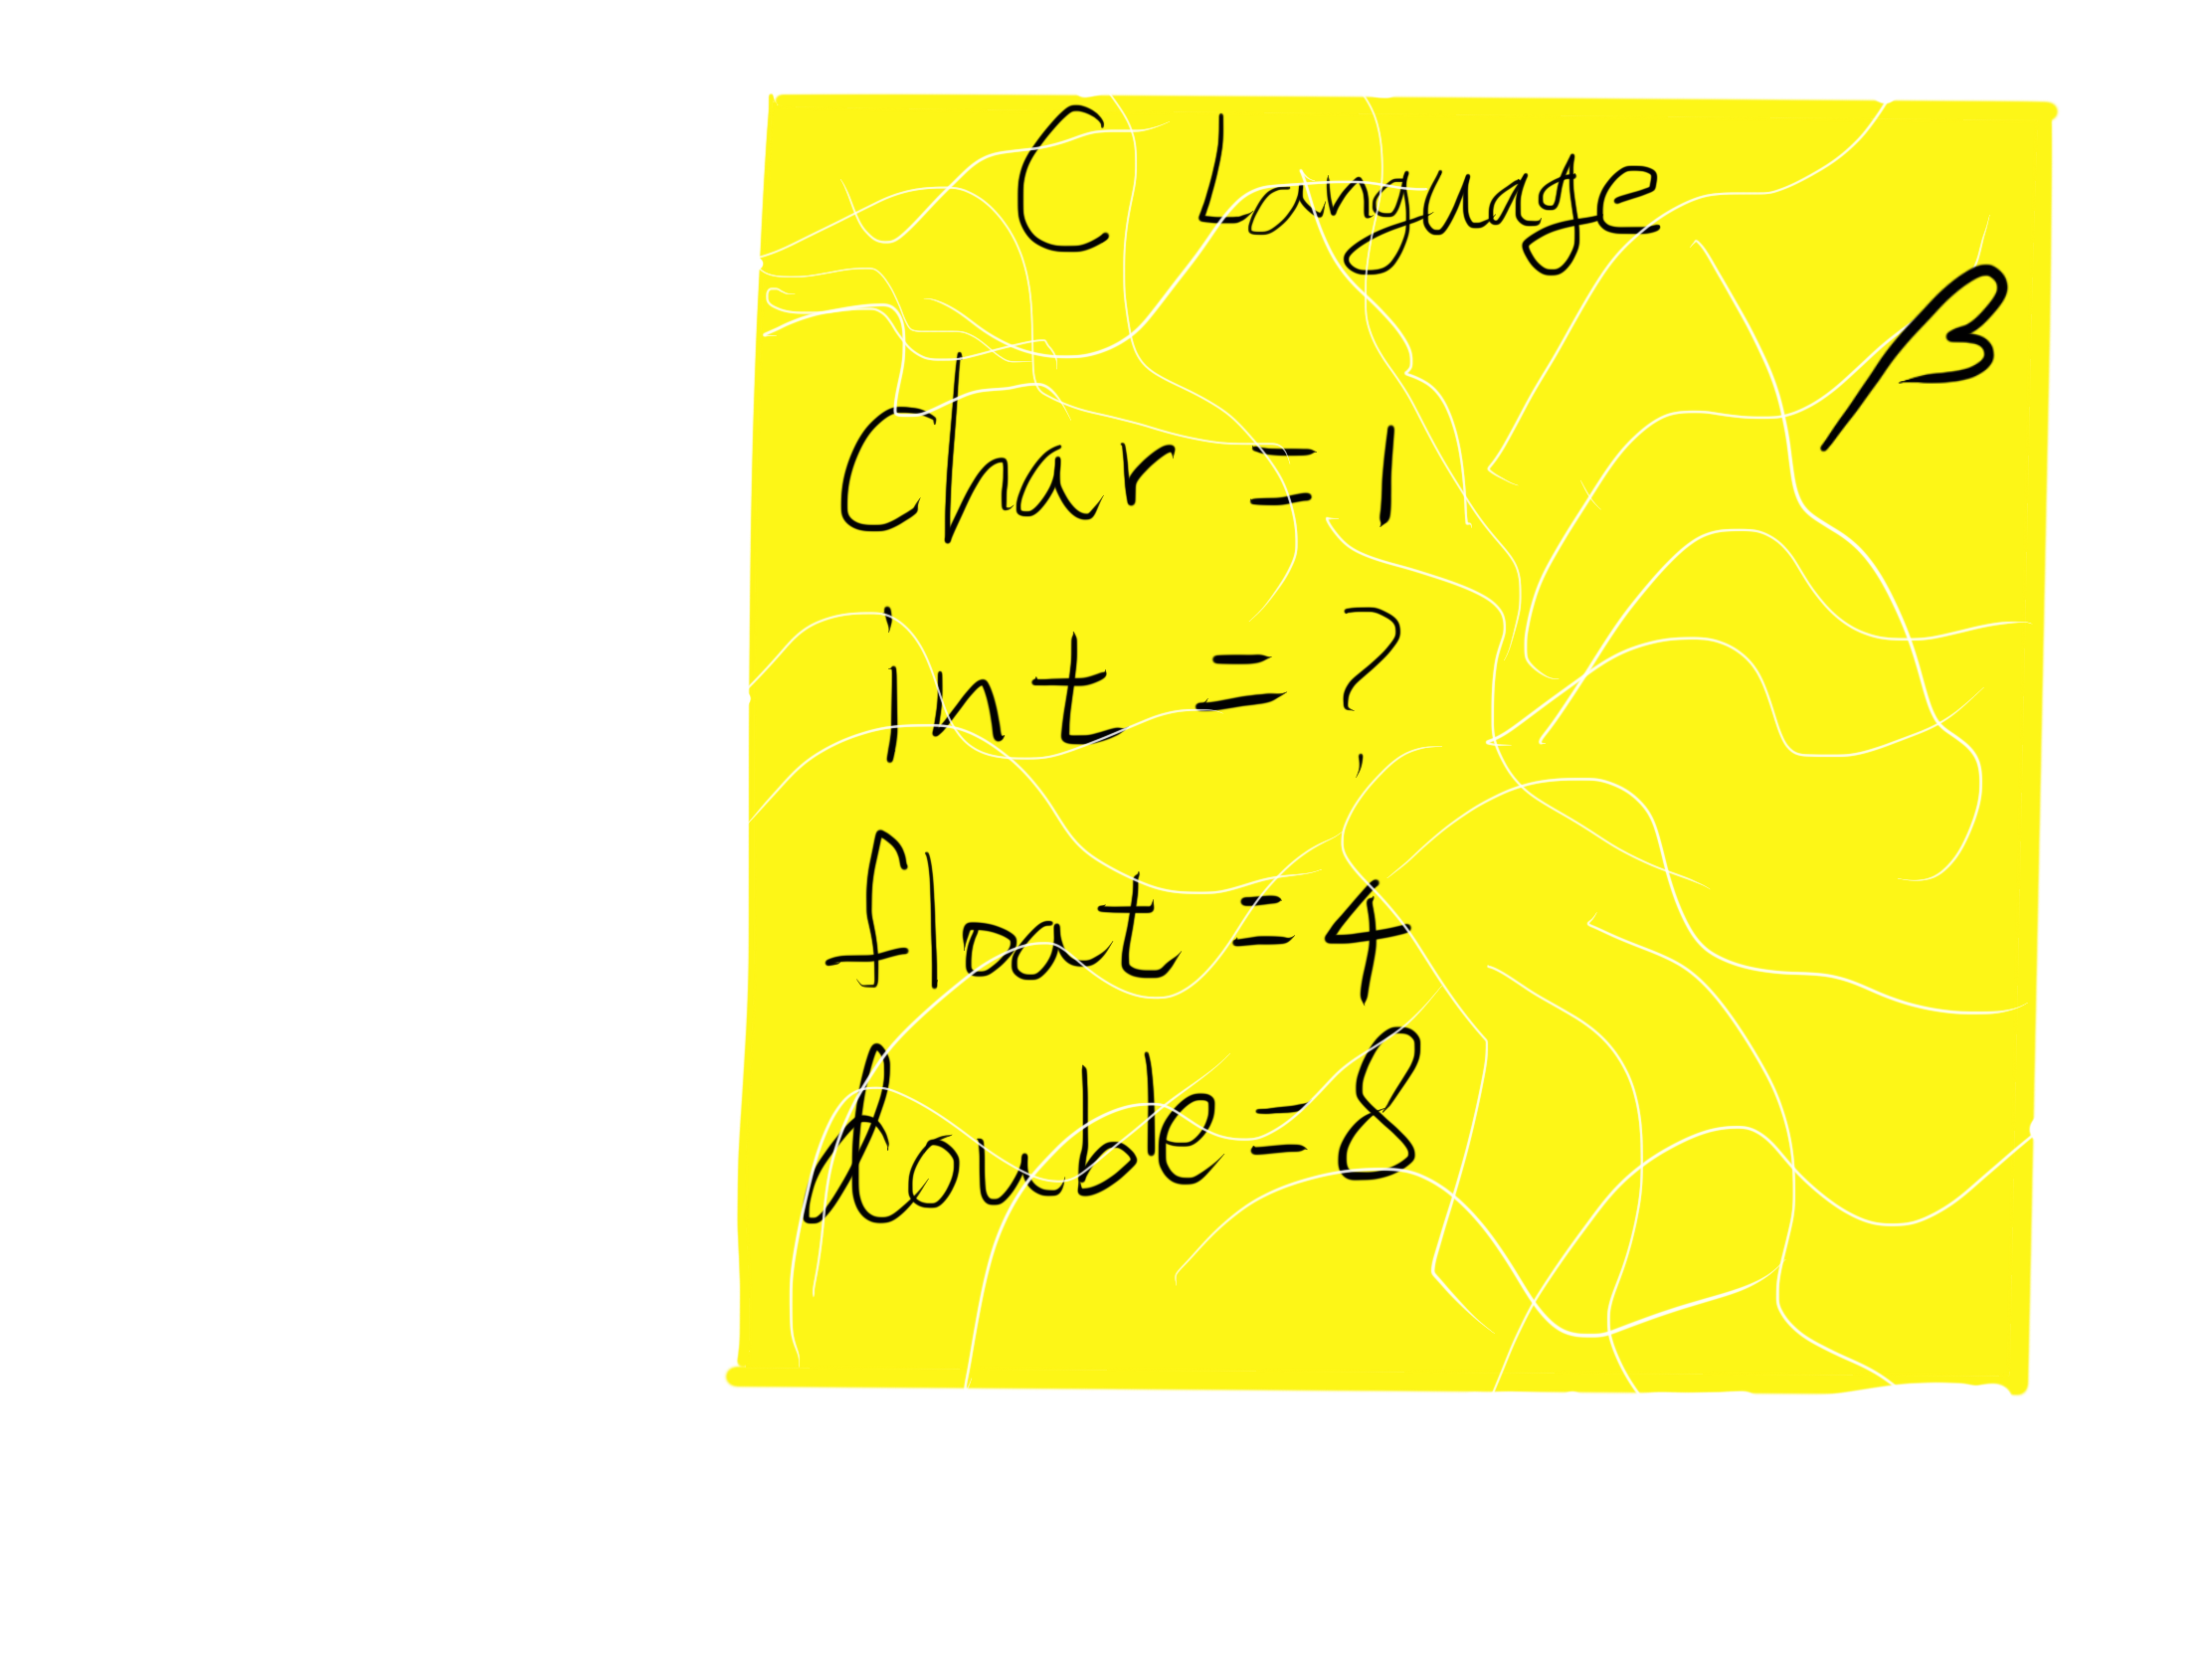 C Language
β
Char = 1
int = ?
float = 4
double = 8